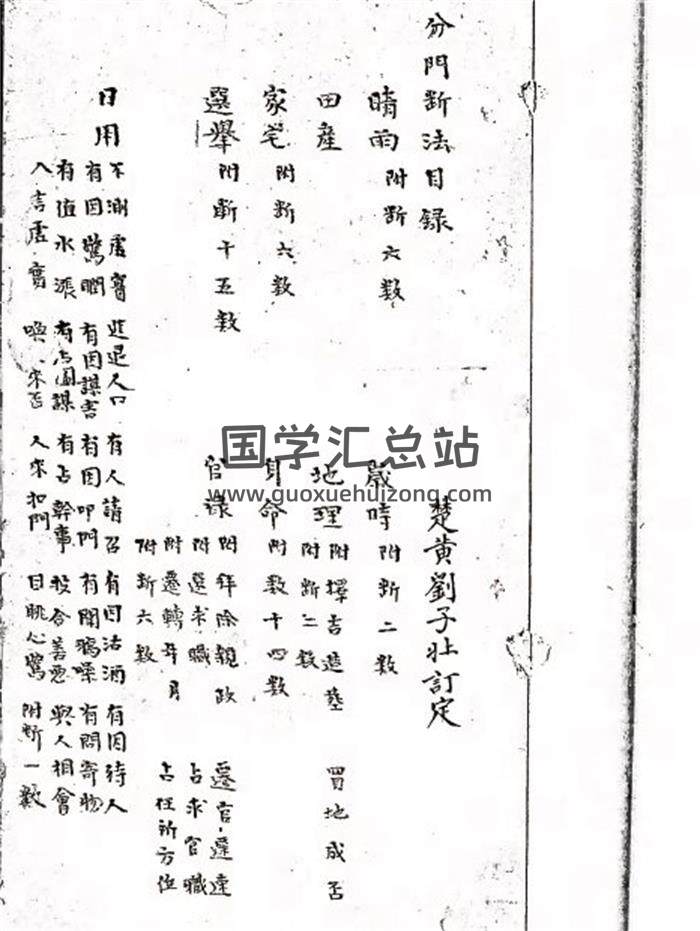 分門斷法目録
楚黃劉子壯訂定
晴雨 附斷六数
歲時 附斷二数
田產
地理 附擇吉造塟 買地成否
附斷二数
家宅 附斷六数
身命 附数十四数
選舉 附斷十五数
官祿 附拜除親政 遷官遷達
附選求職 占求官職
附遷轉年月 占任所方位
附斷六数
日用
不測虛實 進退人口 有人請召 有因沽酒 有因待人
有因驚聞 有因謀害 有因叩門 有聞鴉噪 有問寄物
有值水漲 有占圖謀 有占幹事 投合善惡 與人相會
人言虛實 喚人來否 人來扣門 目眺心驚 附斷一数
国学汇总站
www.guoxuehuizong.com